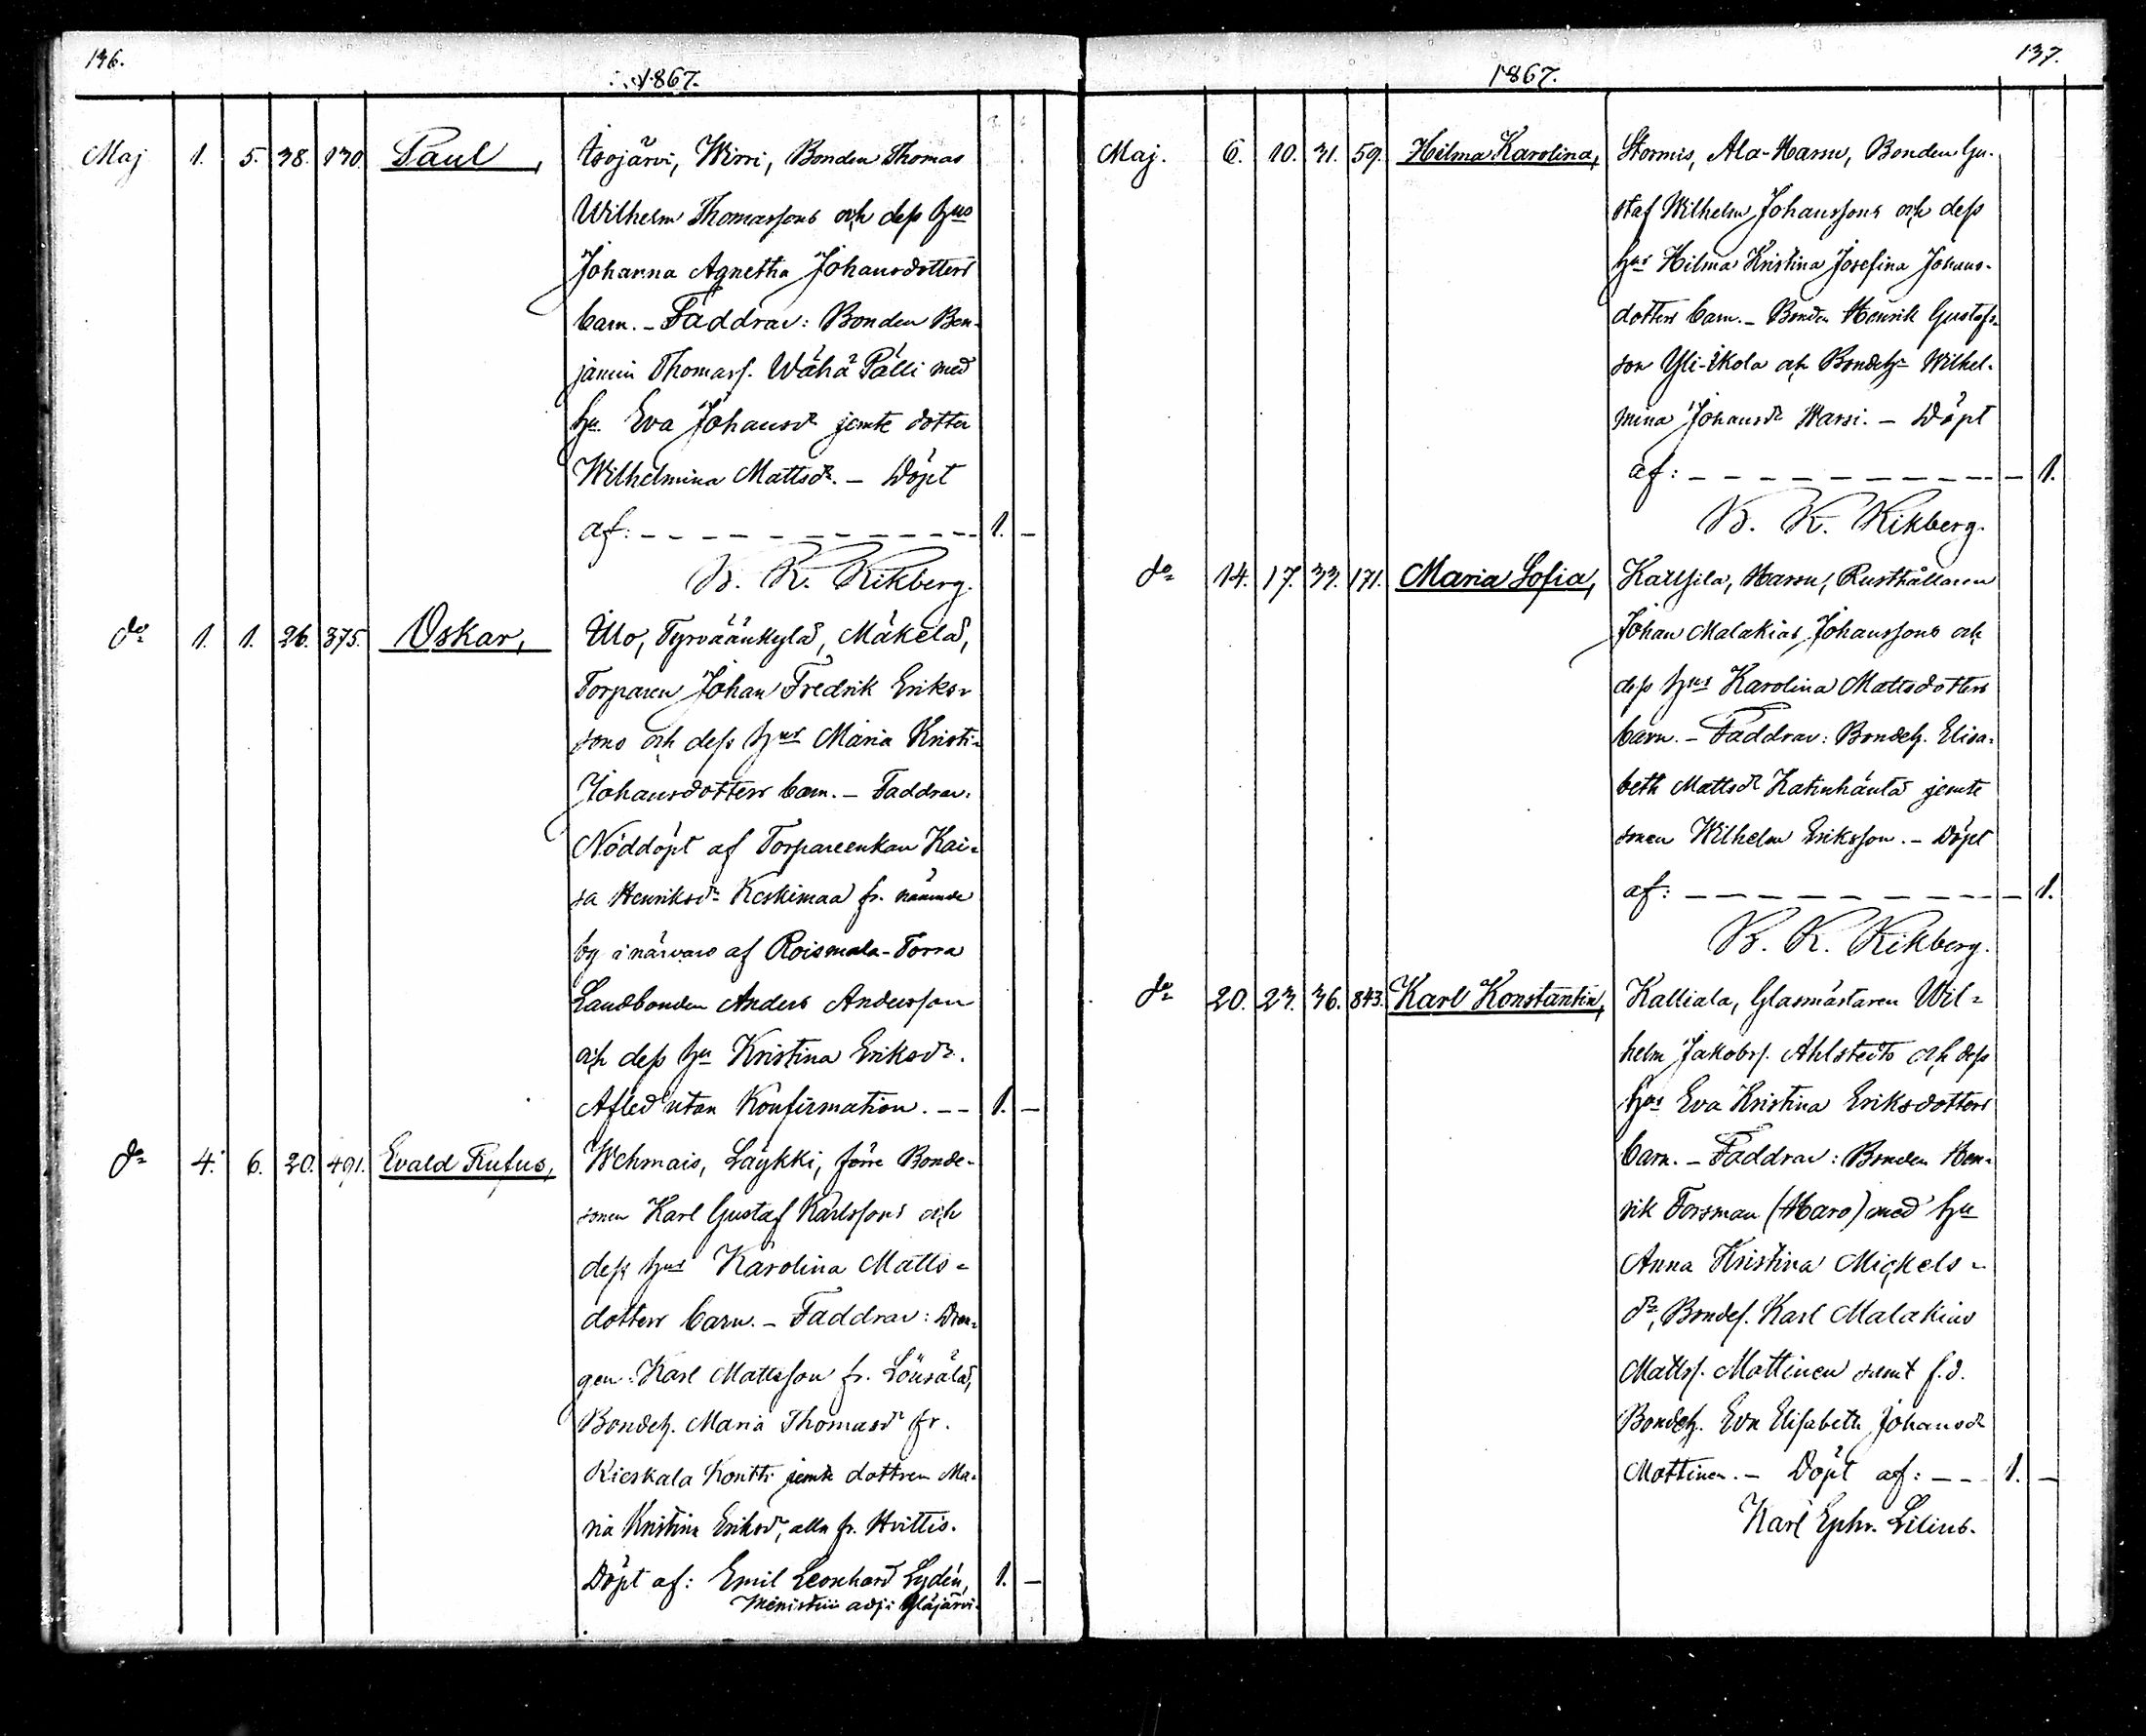 136.
1867.
Maj 1. 5. 38. 130. Paul, Isojärvi, Wirri, Bonden Thomas
Wilhelm Thomassons och dess hus
Johanna Agnetha Johansdotters
barn. – Faddrar: Bonden Ben-
jamin Thomass. Wähä Pälli med
hu Eva Johansdr jemte dotter
Wilhelmina Mattsdr. – Döpt
af: – – – – – – – – – – 1. –
B. K. Rikberg.
do 1. 1. 26. 375. Oskar, Ulo, Tyrväänkylä, Mäkelä,
Torparen Johan Fredrik Eriks-
sons och dess hus Maria Kristi-
Johansdotters barn. – Faddrar:
Nöddöpt af Torpareenkan Kai-
sa Henriksdr Keskimaa fr. nämnde
by i närvaro af Roismala-Torra
Landbonden Anders Andersson
och dess hu Kristina Eriksdr.
Afled utan Konfirmation. – – 1. –
do 4. 6. 20. 491. Evald Rufus, Wehmais, Läykki, förre Bonde-
sonen Karl Gustaf Karlssons och
dess hus Karolina Matts-
dotters barn. – Faddrar: Dren-
gen Karl Mattsson fr.
Bondeh. Maria Thomasdr fr.
Kieskala Kontti jemte dottren Ma-
ria Kristina Eriksdr, alla fr. Hvittis.
Döpt af: Emil Leonhard Lydén, 1. –
Ministerii adj. i
137.
1867.
Maj. 6. 10. 31. 59. Hilma Karolina, Stormis, Ala-Harsu, Bonden Gu-
staf Wilhelm Johanssons och dess
hus Hilma Kristina Josefina Johans-
dotters barn. – Bonden Henrik Gustafs-
son Yli-Ikola och Bondeh. Wilhel-
mina Johansdr Warsi. – Döpt
af: – – – – – – – – – – – 1.
B. K. Rikberg.
do 14. 17. 33. 171. Maria Sofia, Karsila, Harsu, Rusthållaren
Johan Malakias Johanssons och
dess hus Karolina Mattsdotters
barn. – Faddrar: Bondeh. Elisa-
beth Mattsdr Katinhäntä jemte
sonen Wilhelm Eriksson. – Döpt
af: – – – – – – – – – – – 1.
B. K. Rikberg.
do 20. 23. 36. 843. Karl Konstantin, Kalliala, Glasmästaren Wil-
helm Jakobss. Ahlstedts och dess
hus Eva Kristina Eriksdotters
barn. – Faddrar: Bonden Hen-
rik Forsman (Haro) med hu
Anna Kristina Mickels-
dr, Bondes. Karl Malakias
Mattss. Mattinen samt f.d.
Bondeh. Eva Elisabeth Johansdr
Mattinen. – Döpt af: – – 1. –
Karl Ephr. Lilius.